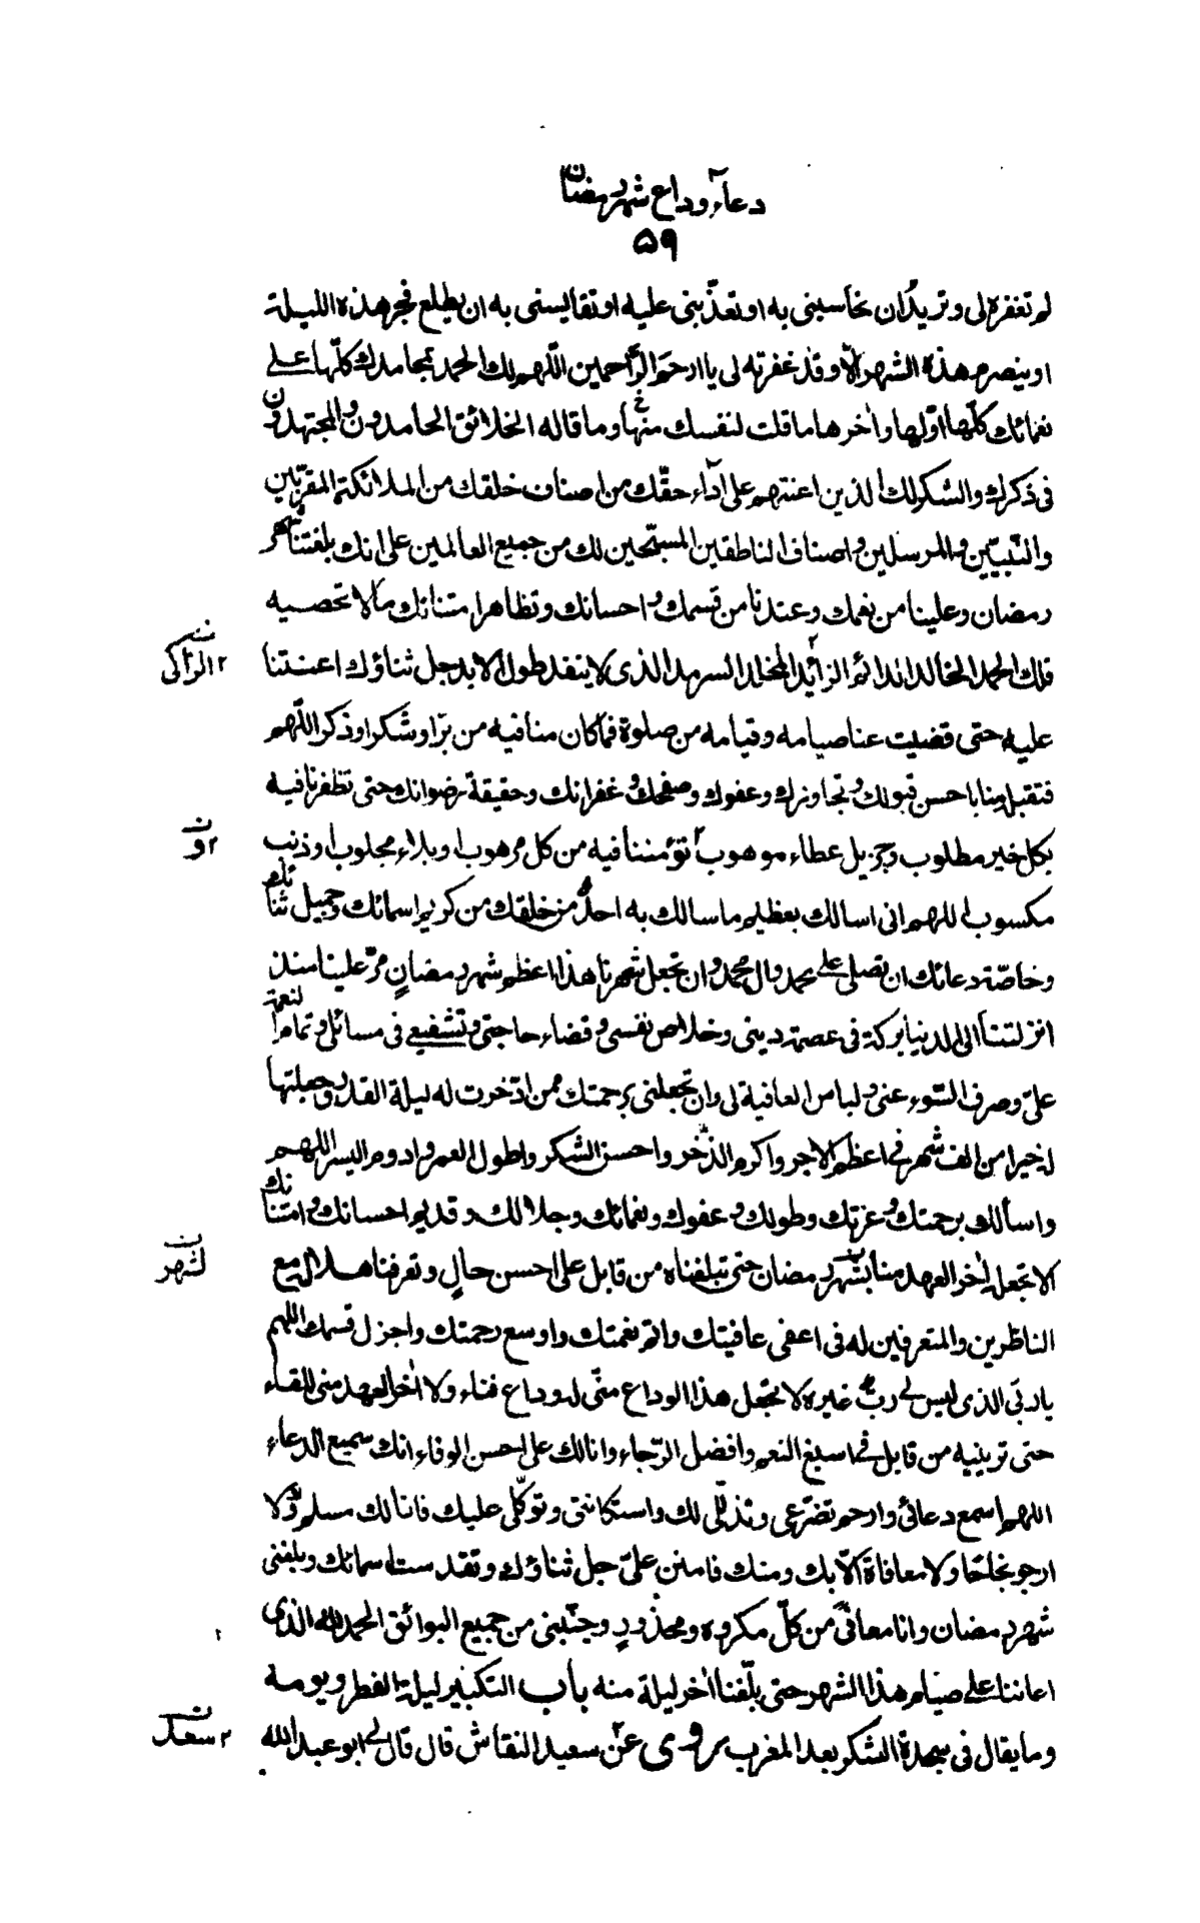 دعآء وداع شهر رمضان
۵۹
لم تغفره لى و تريد ان تحاسبنى به او تعذّبنى عليه او تقايسنى به ان يطلع فجر هذه الليلة
او ينصرم هذه الشهر الّا وقد غفرته لى يا ارحم الرّاحمين اللّهم لك الحمد بمحامدك كلّها على
نعمائك كلّها اوّلها واٰخرها ما قلت لنفسك منها وما قاله الخلائق الحامدون و المجتهدون
فى ذكرك والشكر لك الذين اعنتهم على ادآء حقّك من اصناف خلقك من الملائكة المقرّبين
والنّبيّين والمرسلين واصناف الناطقين المسبّحين لك من جميع العالمين على انك بلغتنا شهر
رمضان وعلينا من نعمك وعندنا من قسمك واحسانك وتظاهر امتنانك مالا تحصيه
فلك الحمد الخالد الدائم الزائد المخلد السرمد الذى لا ينفد طول الابد جل ثناؤك اعنتنا
۲ الراكى
عليه حتى قضيت عنا صيامه وقيامه من صلوة فما كان منا فيه من برّ او شكر او ذكر اللّهم
فتقبله منا باحسن قبولك وتجاوزك وعفوك وصفحك و غفرانك وحقيقة رضوانك حتى تظفرنا فيه
بكل خير مطلوب وجزيل عطاء موهوب تؤمننا فيه من كل مرهوب او بلاء مجلوب او ذنب
۲ و ن
مكسوب اللهم انى اسالك بعظيم ما سالك به احد من خلقك من كريم اسمائك وجميل ثنائك
وخاصّة دعائك ان تصلى على محمد وال محمد وان تجعل شهرنا هذا اعظم شهر رمضانٍ مرّ علينا منذ
انزلتنا الى الدنيا بركة فى عصمة دينى وخلاص نفسى و قضاء حاجتى وتشفيعى فى مسائلى وتمام النعمة
علىّ وصرف السّوء عنى ولباس العافية لى وان تجعلنى برحمتك ممن ادّخرت له ليلة القدر وجعلتها
له خيرا من الف شهر فى اعظم الاجر واكرم الذّخر واحسن الشكر واطول العمر وادوم اليسر اللهم
واسألك برحمتك و عزتك وطولك و عفوك ونعمائك وجلالك و قديم احسانك و امتنانك
الا تجعله اٰخر العهد منا بشهر رمضان حتى تبلغناه من قابل على احسن حالٍ وتعرفنا هلاله مع
لشهر ن
الناظرين والمتعرفين له فى اعفى عافيتك واتم نعمتك واوسع رحمتك واجزل قسمك اللهم
يا ربّى الذى ليس لى ربٌ غيره لا تجعل هذا الوداع منّى له وداع فناء ولا اٰخر العهد منى للقاء
حتى ترينيه من قابل فى اسبغ النعم وافضل الرّجاء وانا لك على احسن الوفاء انك سميع الدعاء
اللهم اسمع دعائى وارحم تضرّعى وتذلّلى لك واستكانتى وتوكّلى عليك فانا لك مسلم و لا
ارجو نجاحًا ولا معافاة الّا بك ومنك فامنن علىّ جل ثناؤك وتقدست اسمائك وبلغنى
شهر رمضان وانا معافًى من كلّ مكروه ومحذورٍ وجنّبنى من جميع البوائق الحمد لله الذى
اعاننا على صيام هذا الشهر حتى بلّغنا اٰخر ليلة منه باب التكبير ليلة الفطر و يومه
وما يقال فى سجدة الشكر بعد المغرب روى عن سعيد النقاش قال قال لى ابو عبد الله
۲ سعد ن